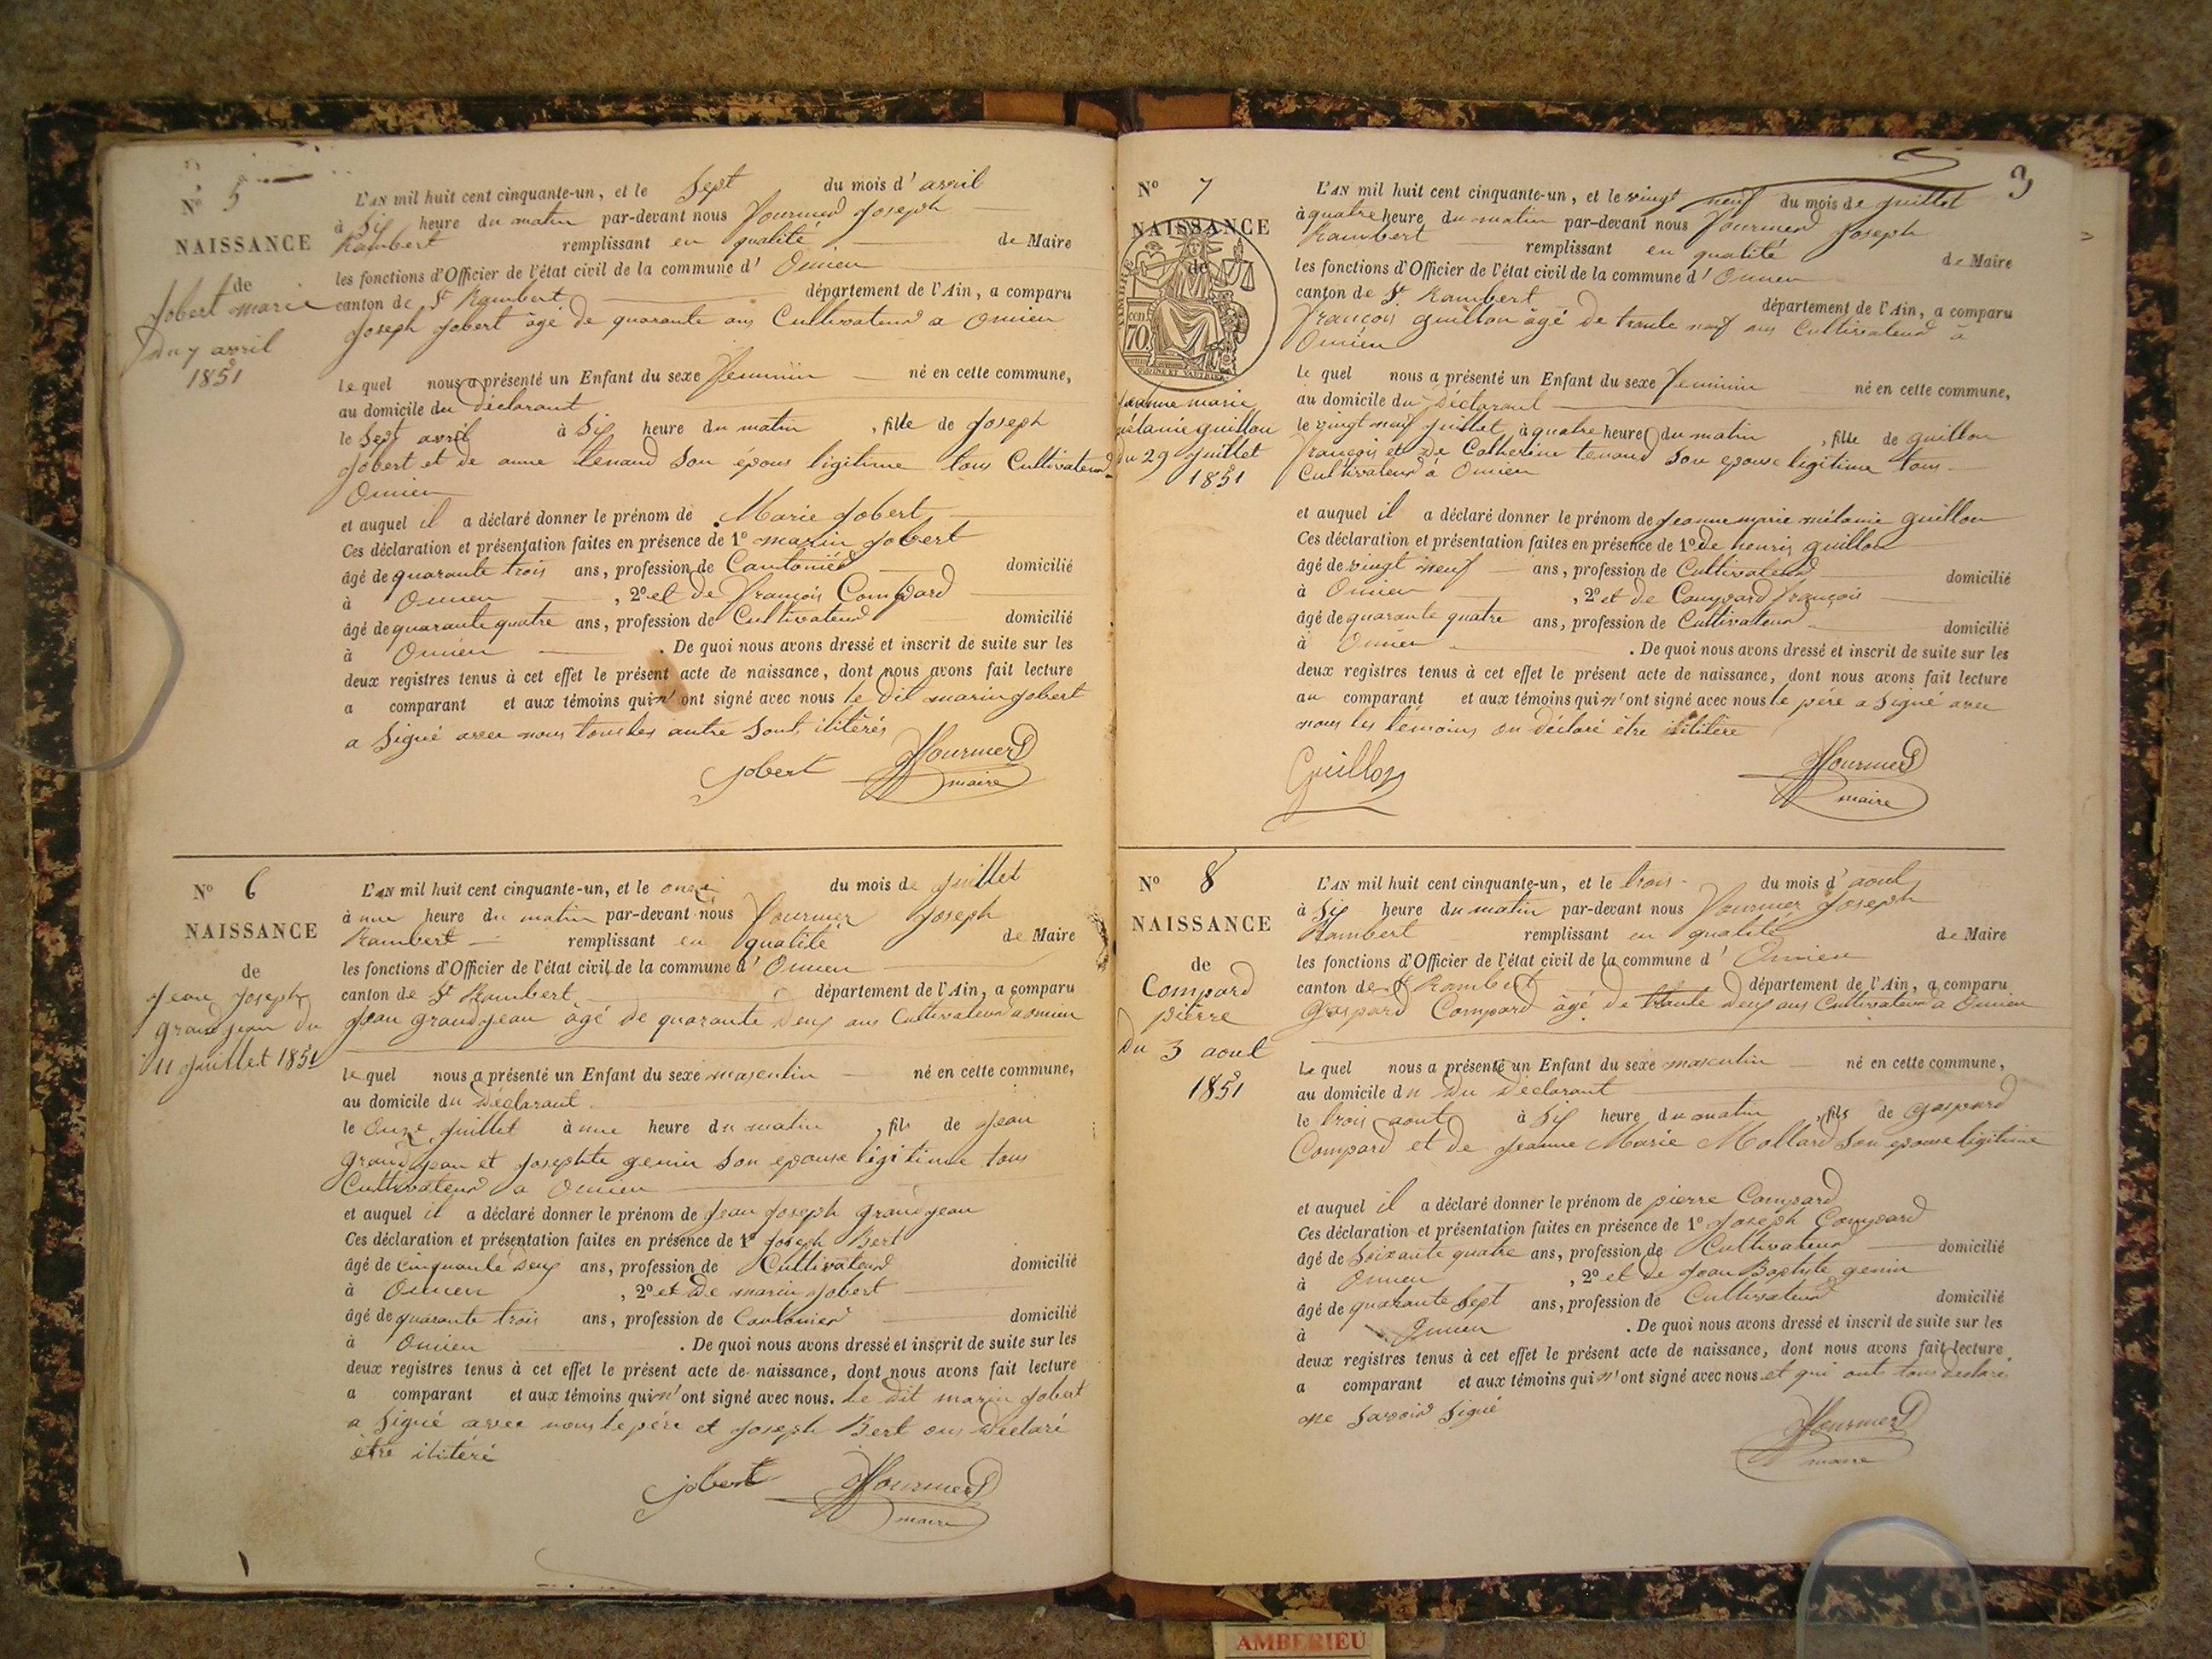 N° 5
NAISSANCE
de
Jobert marie
du 7 avril
1851
L'AN mil huit cent cinquante-un, et le Sept du mois d' avril
à Six heure du matin par-devant nous Fournier Joseph
Rambert remplissant en qualité de Maire
les fonctions d'Officier de l'état civil de la commune d' Oncieu
canton de St Rambert département de l'Ain, a comparu
Joseph Jobert âgé de quarante ans Cultivateur a Oncieu
le quel nous a présenté un Enfant du sexe féminin né en cette commune,
au domicile du déclarant
le Sept avril à Six heure du matin, fille de Joseph
Jobert et de anne tenand Son épous ligitime tous Cultivateur
Oncieu
et auquel il a déclaré donner le prénom de Marie Jobert
Ces déclaration et présentation faites en présence de 1° marin Jobert
âgé de quarante trois ans, profession de Cantonier domicilié
à Oncieu, 2° et de françois Compard
âgé de quarante quatre ans, profession de Cultivateur domicilié
à Oncieu. De quoi nous avons dressé et inscrit de suite sur les
deux registres tenus à cet effet le présent acte de naissance, dont nous avons fait lecture
a comparant et aux témoins qui n'ont signé avec nous le dit marin Jobert
a Signé avec nous tous les autre Sont ilitérés
Jobert Fournier
maire
N° 6
NAISSANCE
de
Jean Joseph
grandjean du
11 juillet 1851
L'AN mil huit cent cinquante-un, et le onze du mois de juillet
à une heure du matin par-devant nous Fournier Joseph
Rambert remplissant en qualité de Maire
les fonctions d'Officier de l'état civil de la commune d' Oncieu
canton de St Rambert département de l'Ain, a comparu
Jean grandjean âgé de quarante deux ans Cultivateur a oncieu
le quel nous a présenté un Enfant du sexe masculin né en cette commune,
au domicile du déclarant
le Onze juillet à une heure du matin, fils de Jean
grandjean et Josephte genin Son epouse légitime tous
Cultivateur a Oncieu
et auquel il a déclaré donner le prénom de Jean Joseph grandjean
Ces déclaration et présentation faites en présence de 1° Joseph Bert
âgé de cinquante deux ans, profession de Cultivateur domicilié
à Oncieu, 2° et de marin Jobert
âgé de quarante trois ans, profession de Cantonier domicilié
à Oncieu. De quoi nous avons dressé et inscrit de suite sur les
deux registres tenus à cet effet le présent acte de naissance, dont nous avons fait lecture
a comparant et aux témoins qui n'ont signé avec nous. Le dit marin Jobert
a Signé avec nous le pére et Joseph Bert ons déclaré
être ilitéré
Jobert Fournier
maire
3
N° 7
NAISSANCE
de
Jeanne marie
mélanie guillon
du 29 juillet
1851
L'AN mil huit cent cinquante-un, et le vingt neuf du mois de juillet
à quatre heure du matin par-devant nous Fournier Joseph
Rambert remplissant en qualité de Maire
les fonctions d'Officier de l'état civil de la commune d' Oncieu
canton de St Rambert département de l'Ain, a comparu
François guillon âgé de trante neuf ans Cultivateur à
Oncieu
le quel nous a présenté un Enfant du sexe féminin né en cette commune,
au domicile du déclarant
le vingt neuf juillet, à quatre heure du matin, fille de guillon
François et de Catherine tenand Son epouse ligitime tous
Cultivateur à Oncieu
et auquel il a déclaré donner le prénom de Jeanne marie mélanie guillon
Ces déclaration et présentation faites en présence de 1° de henri guillon
âgé de vingt neuf ans, profession de Cultivateur domicilié
à Oncieu, 2° et de Compard françois
âgé de quarante quatre ans, profession de Cultivateur domicilié
à Oncieu. De quoi nous avons dressé et inscrit de suite sur les
deux registres tenus à cet effet le présent acte de naissance, dont nous avons fait lecture
au comparant et aux témoins qui n'ont signé avec nous le pére a Signé avec
nous les témoins on déclaré être ilitére
Guillon Fournier
maire
N° 8
NAISSANCE
de
Compard
pierre
du 3 aout
1851
L'AN mil huit cent cinquante-un, et le trois du mois d' aout
à Six heure du matin par-devant nous Fournier Joseph
Rambert remplissant en qualité de Maire
les fonctions d'Officier de l'état civil de la commune d' Oncieu
canton de St Rambert département de l'Ain, a comparu
Gaspard Compard âgé de trante deux ans Cultivateur à Oncieu
le quel nous a présenté un Enfant du sexe masculin né en cette commune,
au domicile du du déclarant
le trois aout à Six heure du matin, fils de gaspard
Compard et de Jeanne Marie Mollard Son epouse ligitime
et auquel il a déclaré donner le prénom de pierre Compard
Ces déclaration et présentation faites en présence de 1° Joseph Compard
âgé de Soixante quatre ans, profession de Cultivateur domicilié
à Oncieu, 2° et de Jean Baptiste genin
âgé de quarante Sept ans, profession de Cultivateur domicilié
à Oncieu. De quoi nous avons dressé et inscrit de suite sur les
deux registres tenus à cet effet le présent acte de naissance, dont nous avons fait lecture
a comparant et aux témoins qui n'ont signé avec nous et qui ont tous déclaré
ne Savoir Signé
Fournier
maire
AMBERIEU